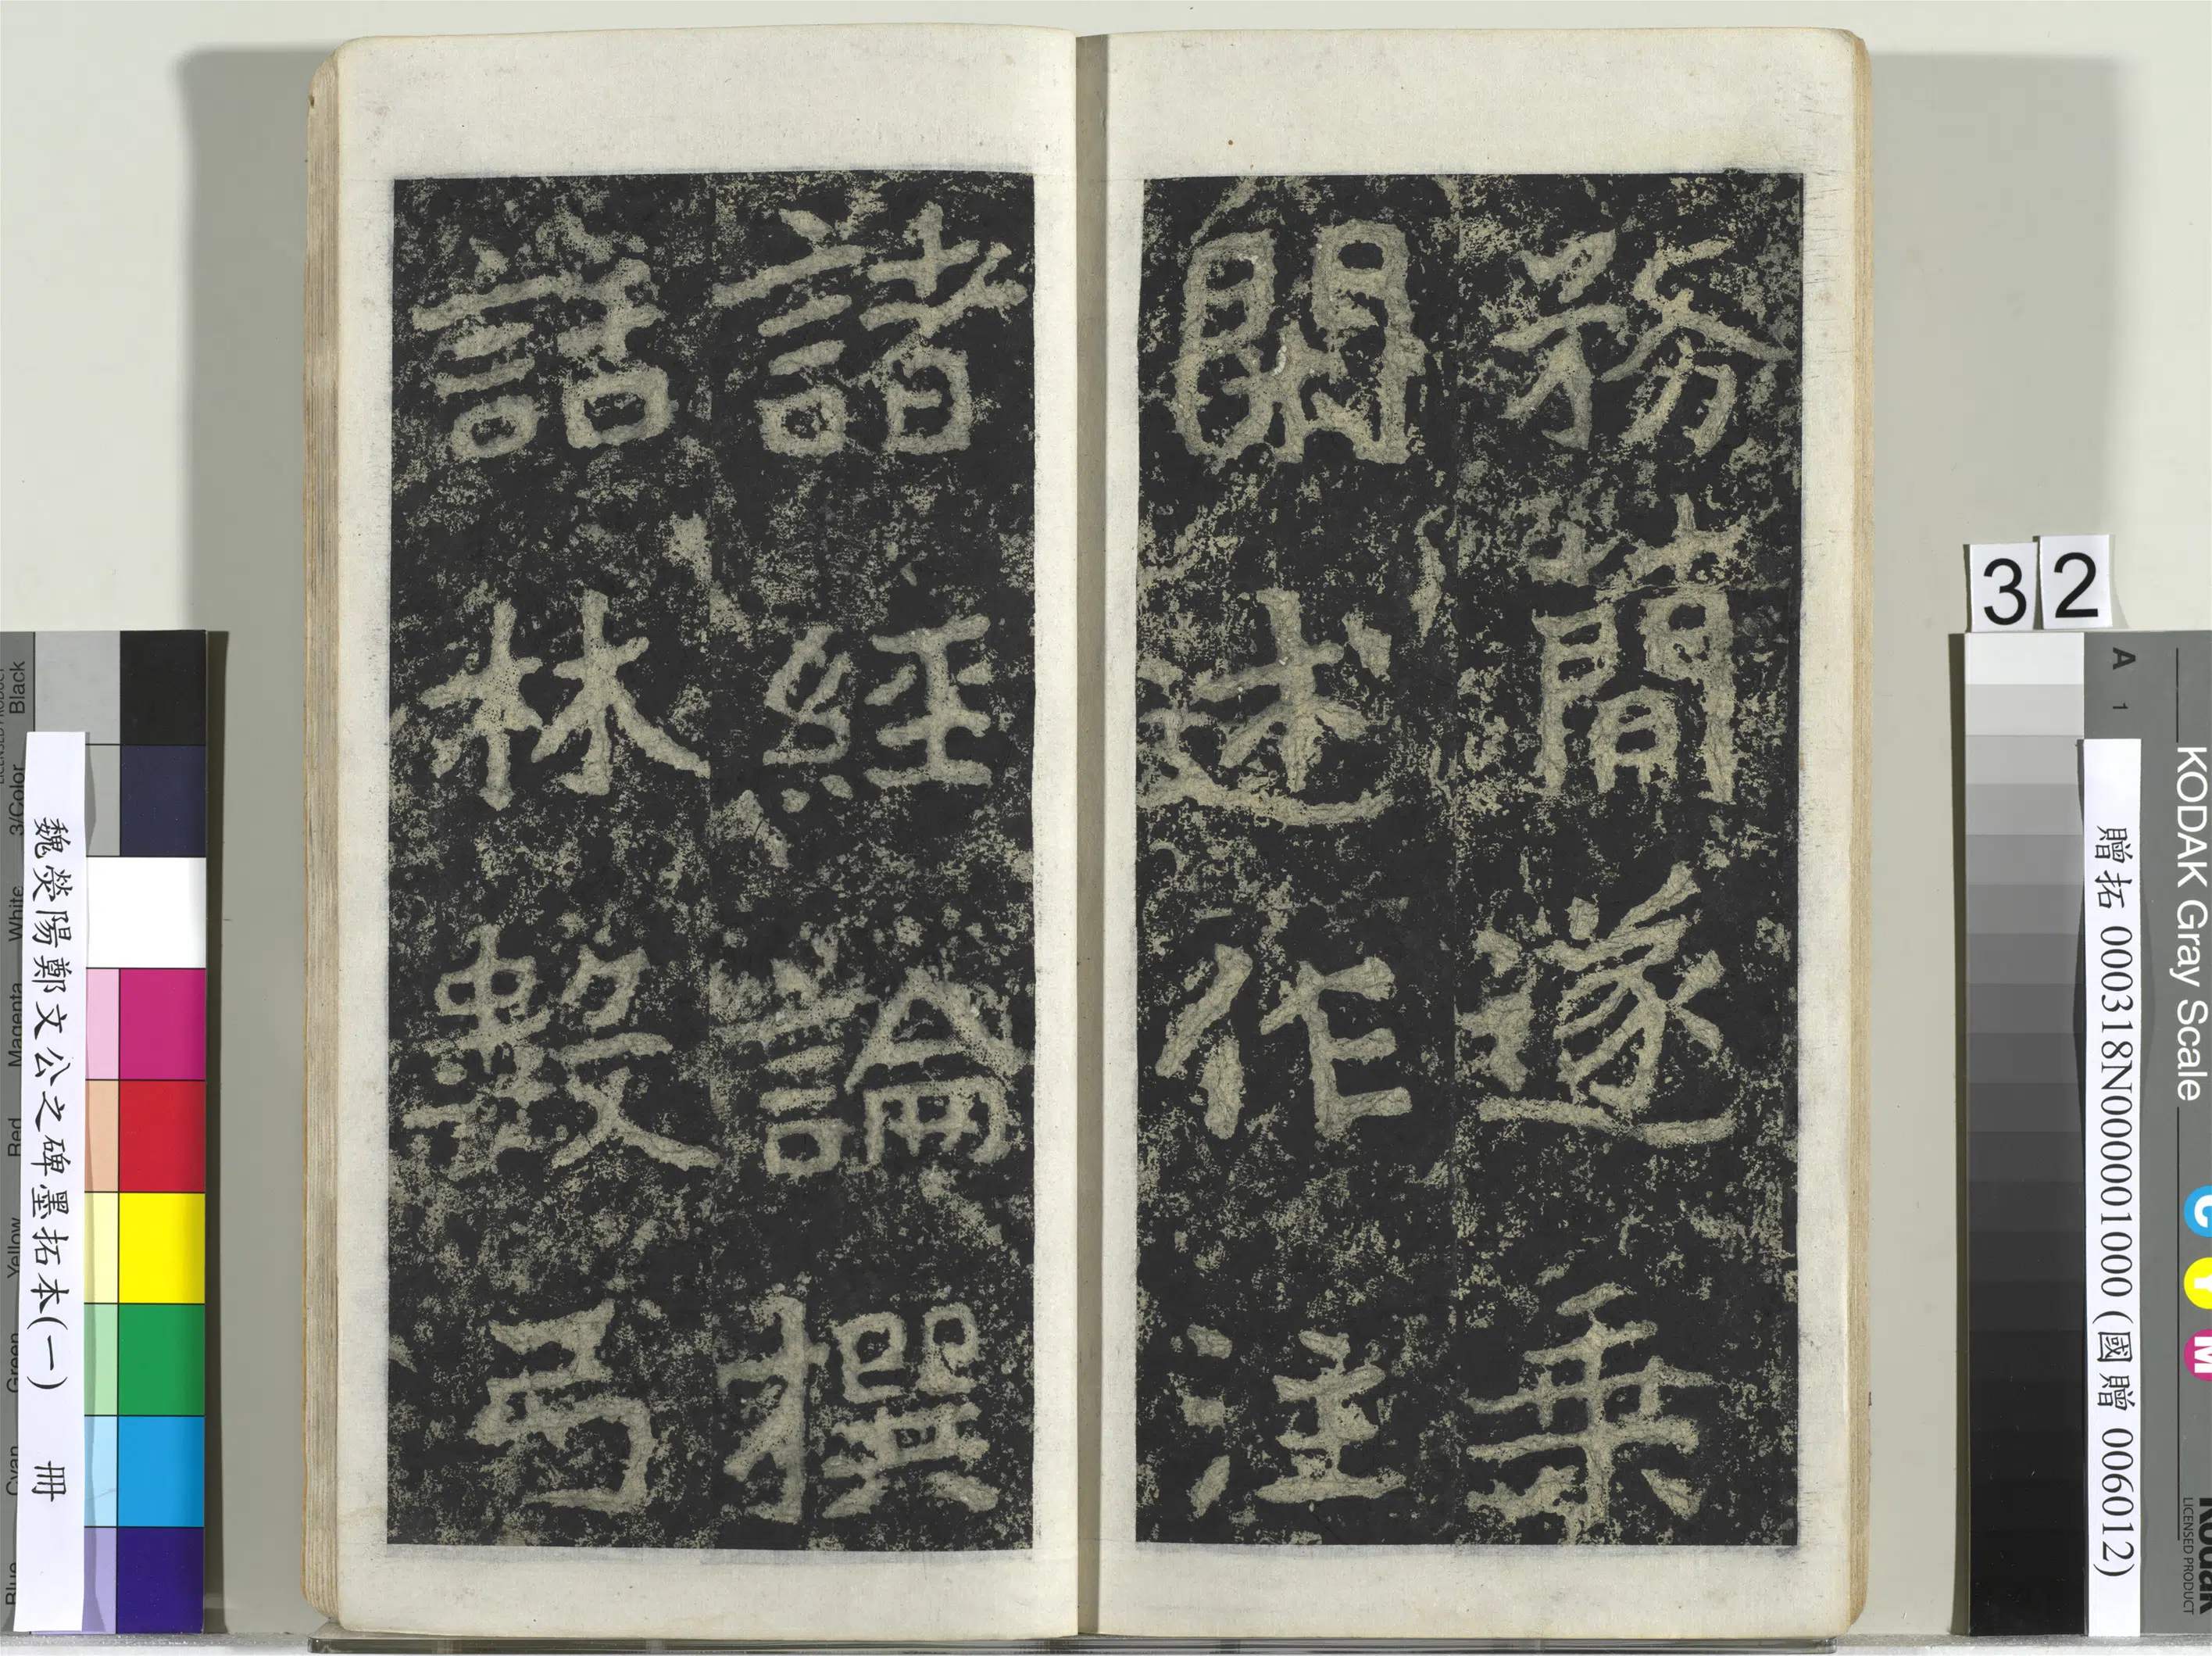 務簡遂乗
開述作注
諸經論撰
話林數弓
32
魏滎陽鄭文公之碑墨拓本(一) 冊
贈拓 000318N000001000 (國贈 006012)
KODAK Gray Scale
A 1
C Y M
Kodak
LICENSED PRODUCT
Black
3/Color
White
Magenta
Red
Yellow
Green
Cyan
Blue